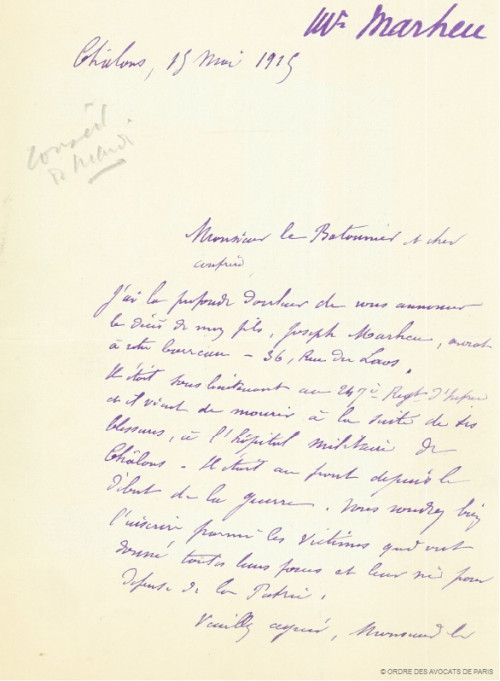 Mr Marheu
Châlons, 15 Mai 1915
Conseil
Monsieur le Batonnier et cher
confrère,
J'ai la profonde douleur de vous annoncer
le décès de mon fils, Joseph Marheu, avocat
à votre barreau – 36, Rue du Laos.
Il était sous lieutenant au 247e Regt d'Infrie
et il vient de mourir à la suite de ses
blessures, à l'hôpital militaire de
Châlons. Il était au front depuis le
début de la guerre. Vous voudrez bien
l'inscrire parmi les victimes qui ont
donné toutes leurs forces et leur vie pour
défense de la Patrie.
Veuillez agréer, Monsieur le
© ORDRE DES AVOCATS DE PARIS